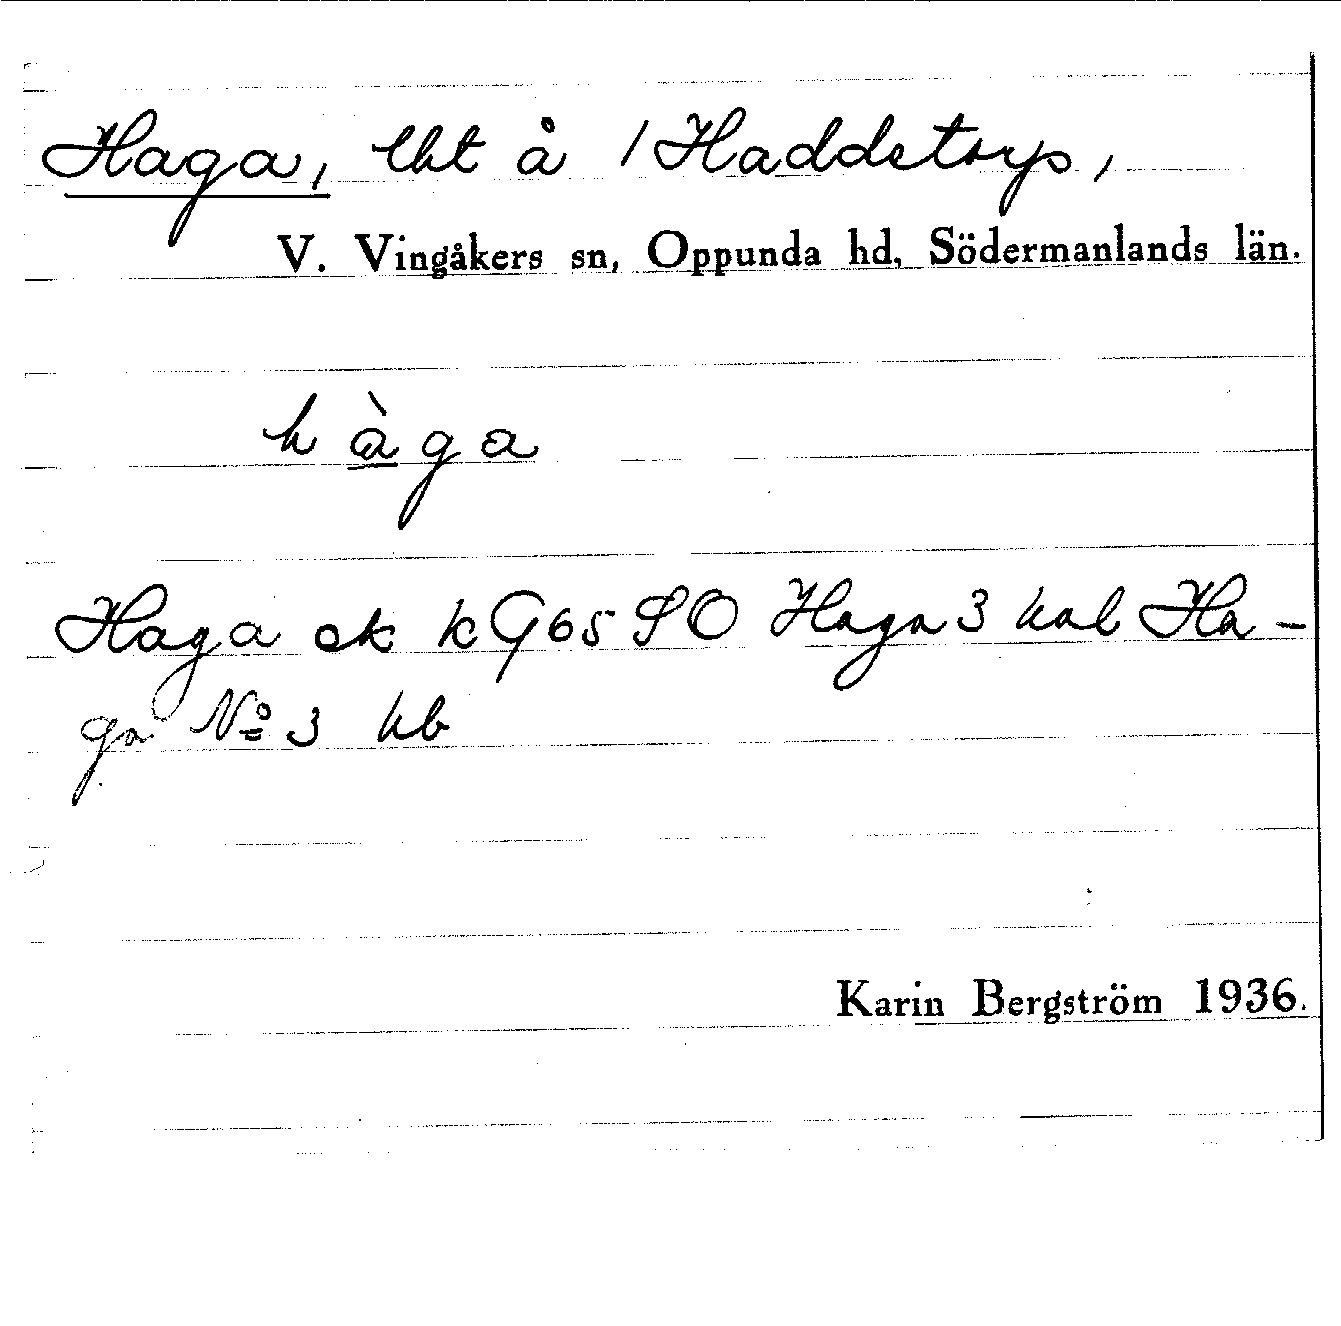 Haga, lht å 1 Haddetorp,
V. Vingåkers sn, Oppunda hd, Södermanlands län.
hàga
Haga ek k G65 SO Haga 3 hal Ha-
ga No 3 kb
Karin Bergström 1936.